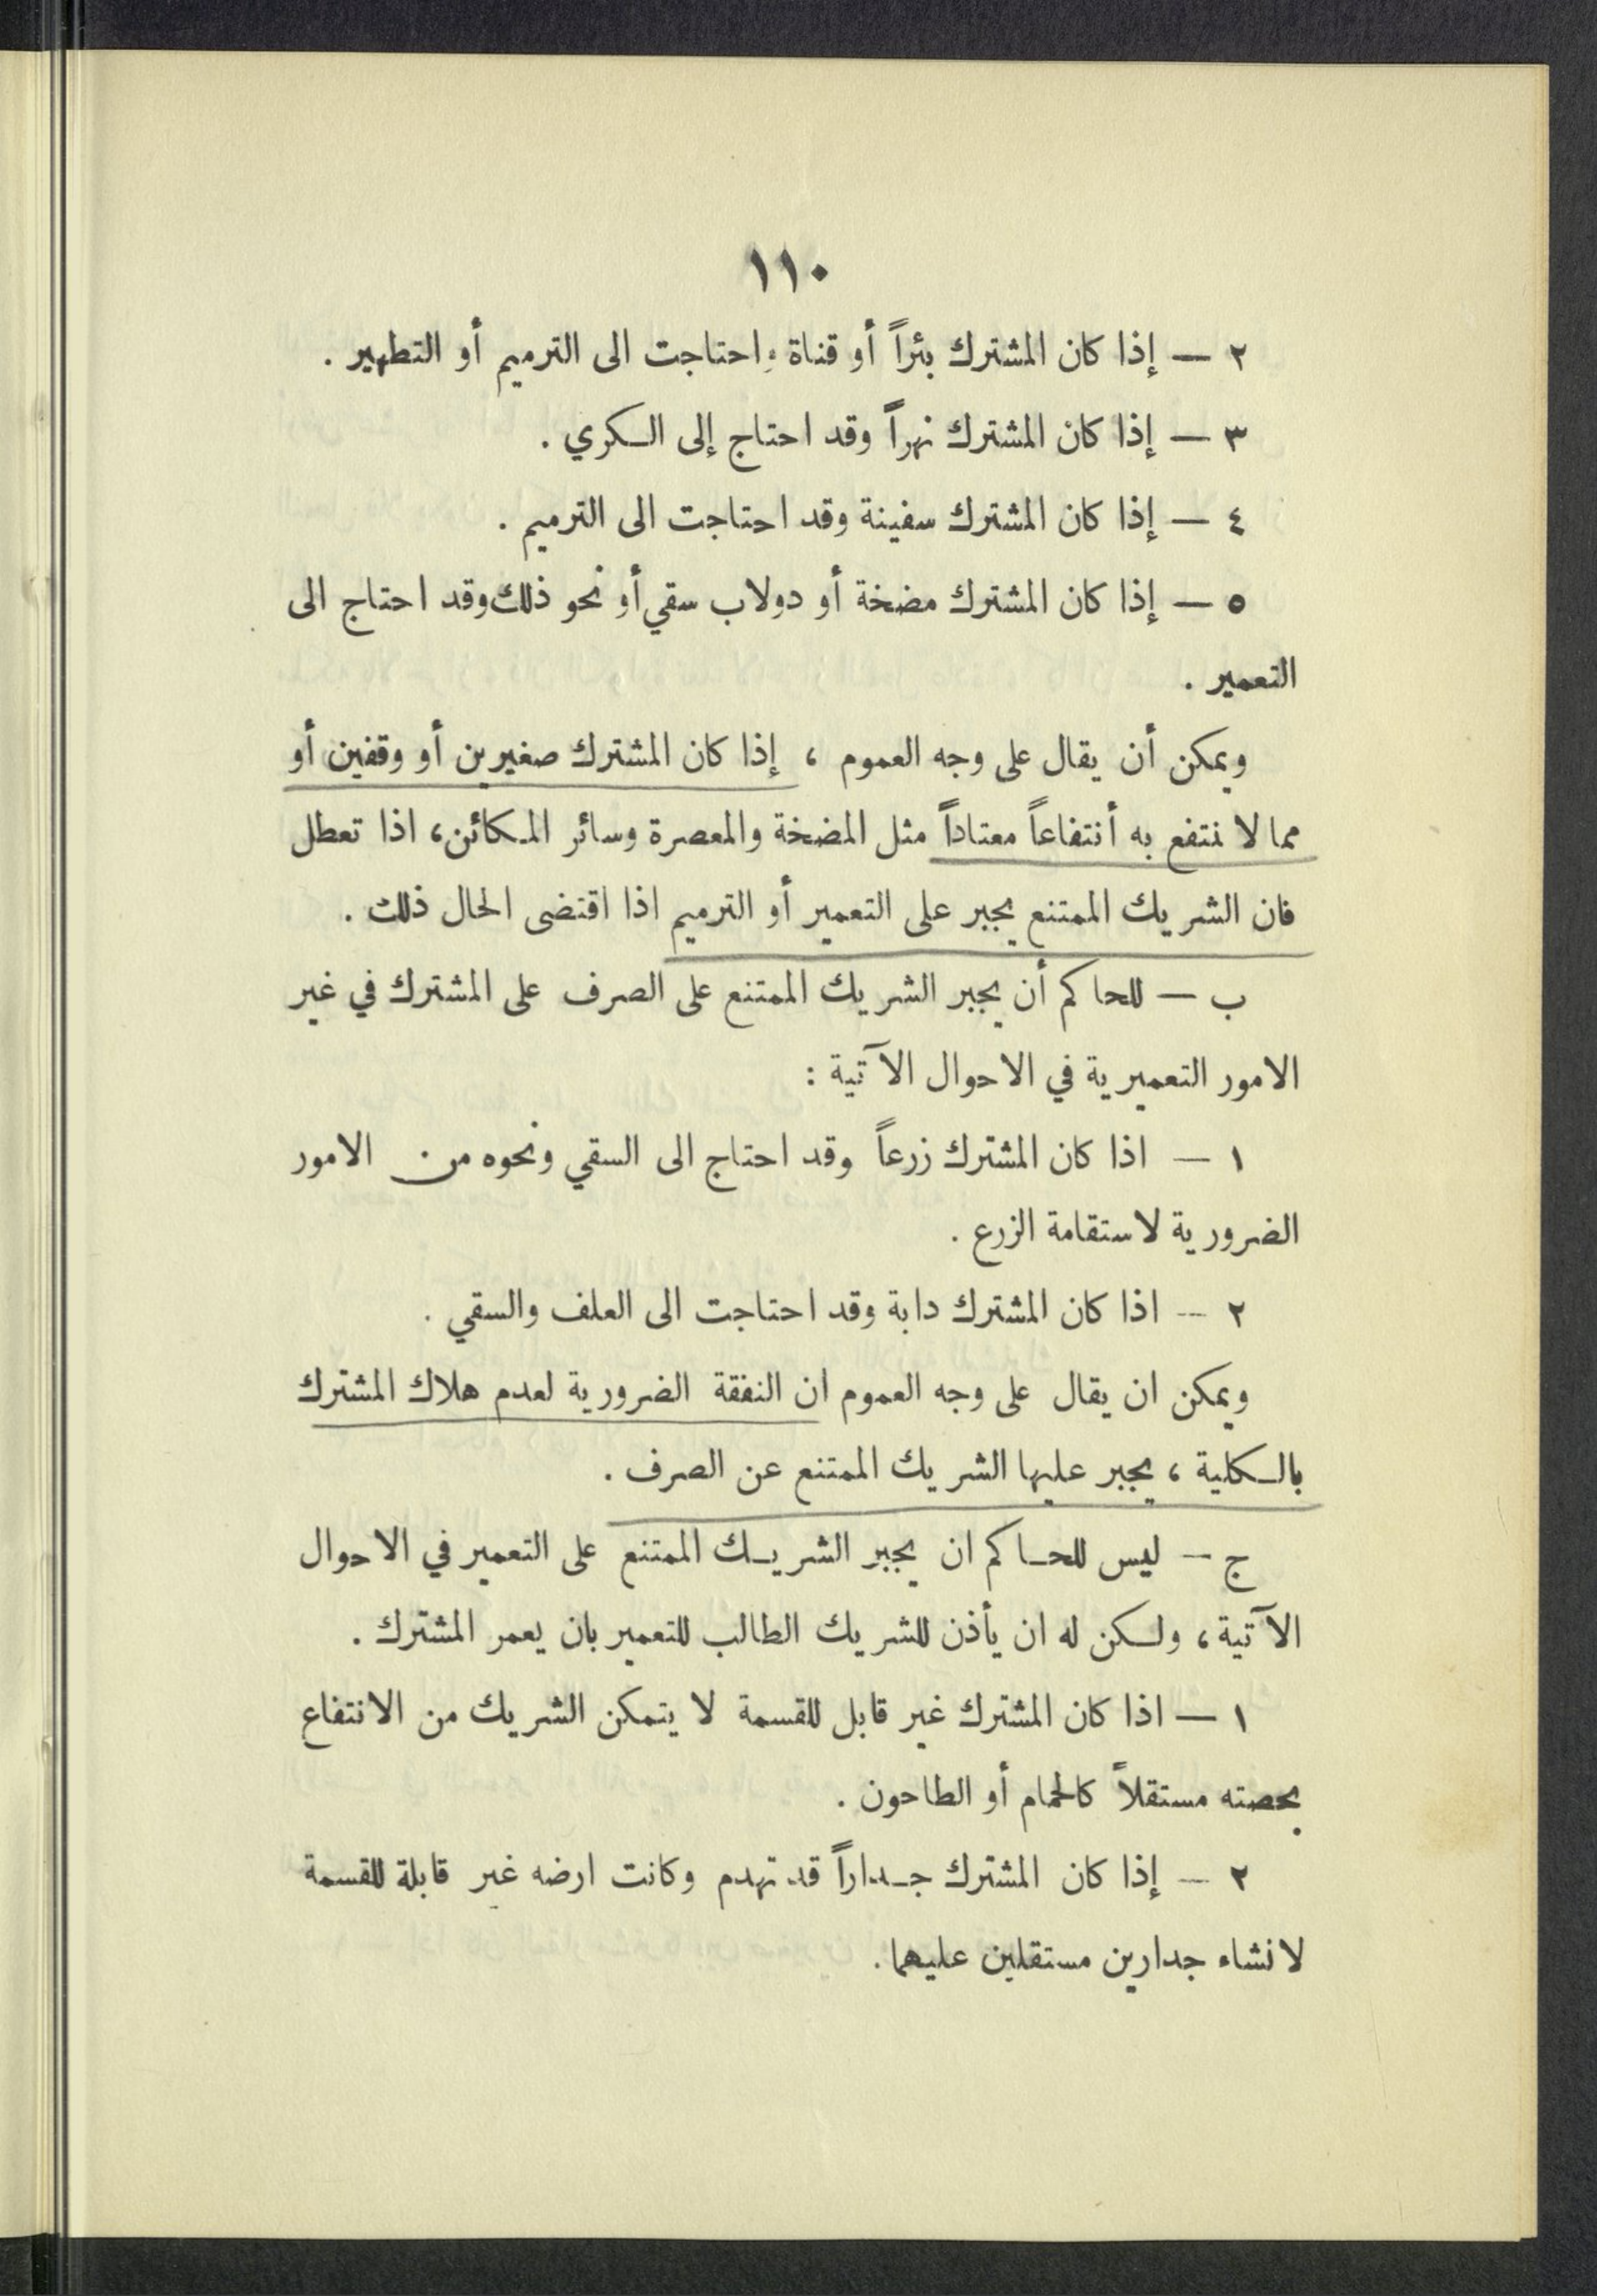 ١١٠
٢ — إذا كان المشترك بئراً أو قناة واحتاجت الى الترميم أو التطهير .
٣ — إذا كان المشترك نهراً وقد احتاج إلى الكري .
٤ — إذا كان المشترك سفينة وقد احتاجت الى الترميم .
٥ — إذا كان المشترك مضخة أو دولاب سقي أو نحو ذلك وقد احتاج الى
التعمير .
ويمكن أن يقال على وجه العموم ، إذا كان المشترك صغيرين أو وقفين أو
مما لا نتفع به أنتفاعاً معتاداً مثل المضخة والمعصرة وسائر المكائن، اذا تعطل
فان الشريك الممتنع يجبر على التعمير أو الترميم اذا اقتضى الحال ذلك .
ب — للحاكم أن يجبر الشريك الممتنع على الصرف على المشترك في غير
الامور التعميرية في الاحوال الآتية :
١ — اذا كان المشترك زرعاً وقد احتاج الى السقي ونحوه من الامور
الضرورية لاستقامة الزرع .
٢ — اذا كان المشترك دابة وقد احتاجت الى العلف والسقي .
ويمكن ان يقال على وجه العموم ان النفقة الضرورية لعدم هلاك المشترك
بالكلية ، يجبر عليها الشريك الممتنع عن الصرف .
ج — ليس للحاكم ان يجبر الشريك الممتنع على التعمير في الاحوال
الآتية ، ولكن له ان يأذن للشريك الطالب للتعمير بان يعمر المشترك .
١ — اذا كان المشترك غير قابل للقسمة لا يتمكن الشريك من الانتفاع
بحصته مستقلاً كالحمام أو الطاحون .
٢ — إذا كان المشترك جداراً قد تهدم وكانت ارضه غير قابلة للقسمة
لانشاء جدارين مستقلين عليهما.